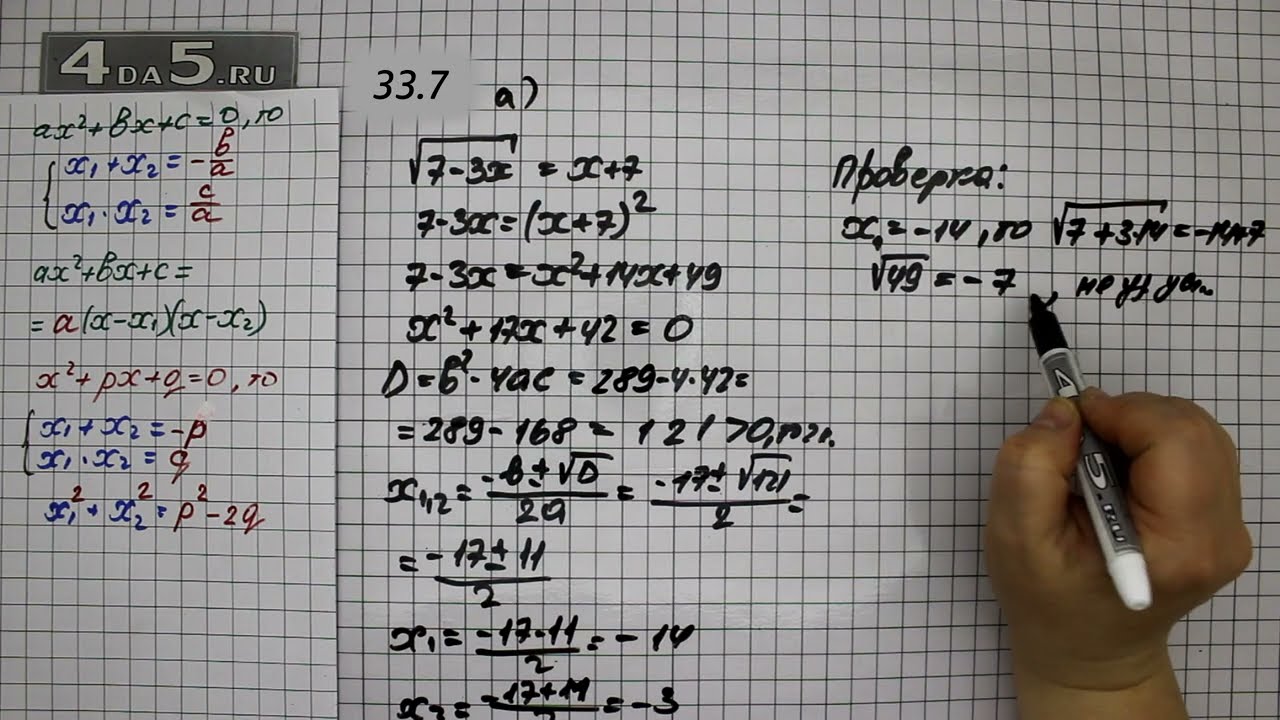 4DA5.RU
ax²+bx+c=0, то
x₁+x₂=-b/a
x₁·x₂=c/a
ax²+bx+c=
=a(x-x₁)(x-x₂)
x²+px+q=0, то
x₁+x₂=-p
x₁·x₂=q
x₁²+x₂²=p²-2q
33.7 а)
√(7-3x) = x+7
7-3x=(x+7)²
7-3x=x²+14x+49
x²+17x+42=0
D=b²-4ac=289-4·42=
=289-168=121>0,
x₁,₂=(-b±√D)/2a=(-17±√121)/2=
=(-17±11)/2
x₁=(-17-11)/2=-14
x₂=(-17+11)/2=-3
Проверка:
x₁=-14, то √(7+3·14)=-14+7
√49=-7
4 5.RU